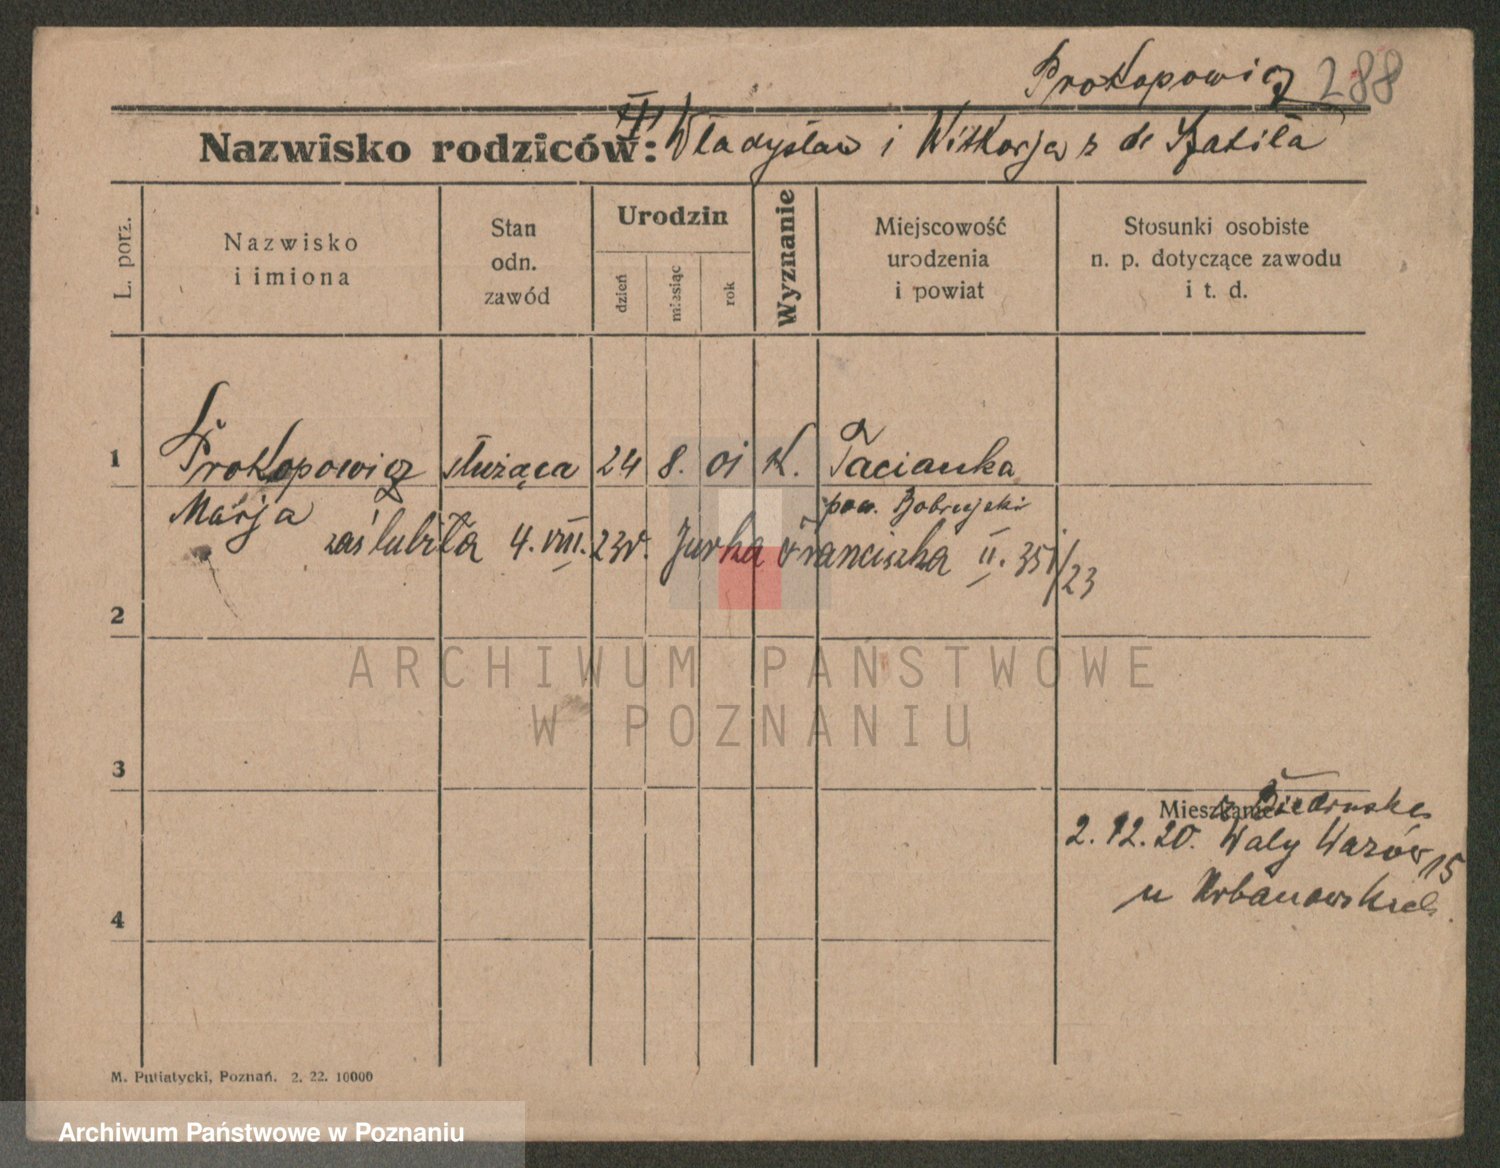 Prokopowicz 288
Nazwisko rodziców: Władysław i Wiktorja z d.
L. porz.
Nazwisko
i imiona
Stan
odn.
zawód
Urodzin
dzień
miesiąc
rok
Wyznanie
Miejscowość
urodzenia
i powiat
Stosunki osobiste
n. p. dotyczące zawodu
i t. d.
1 Prokopowicz służąca 24 8. 01 K. Tacianka
Marja pow. Bobrujski
zaślubiła 4. VIII. 23r. Jurka Franciszka II. 351/23
2
ARCHIWUM PAŃSTWOWE
W POZNANIU
3
Mieszkanie
z Biedruska
2. 12. 20. Wały Wazów 15
u Urbanowskich.
4
M. Putiatycki, Poznań. 2. 22. 10000
Archiwum Państwowe w Poznaniu